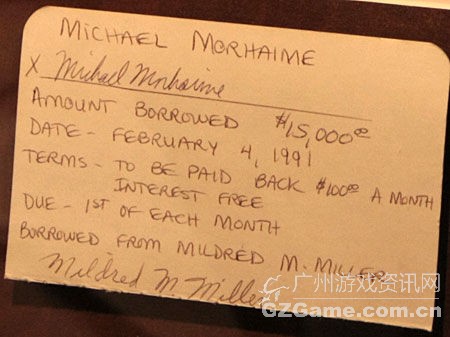 MICHAEL MORHAIME
X Michael Morhaime
AMOUNT BORROWED $15,000.00
DATE - FEBRUARY 4, 1991
TERMS - TO BE PAID BACK $100.00 A MONTH
INTEREST FREE
DUE - 1ST OF EACH MONTH
BORROWED FROM MILDRED M. MILLER
Mildred M Miller
广州游戏资讯网
GZGame.com.cn